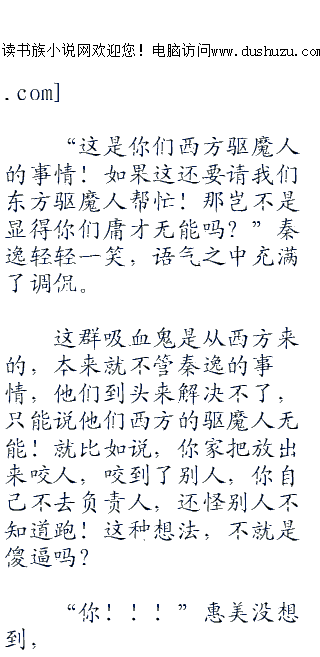 读书族小说网欢迎您！电脑访问www.dushuzu.com
.com]
“这是你们西方驱魔人
的事情！如果这还要请我们
东方驱魔人帮忙！那岂不是
显得你们庸才无能吗？”秦
逸轻轻一笑，语气之中充满
了调侃。
这群吸血鬼是从西方来
的，本来就不管秦逸的事
情，他们到头来解决不了，
只能说他们西方的驱魔人无
能！就比如说，你家把放出
来咬人，咬到了别人，你自
己不去负责人，还怪别人不
知道跑！这种想法，不就是
傻逼吗？
“你！！！”惠美没想
到，